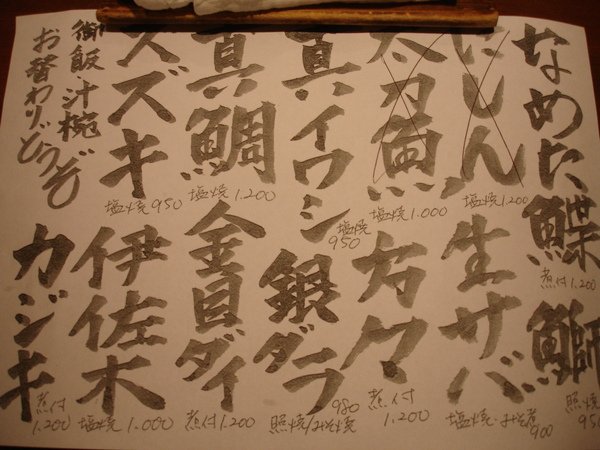 なめた鰈
煮付 1.200
にしん
塩焼 1.200
太刀魚
塩焼 1.000
真イワシ
塩焼
950
真鯛
塩焼 1.200
スズキ
塩焼 950
御飯・汁椀
お替わりどうぞ
鰤
照焼
950
生サバ
塩焼・みそ煮
900
煮付
1.200
銀ダラ
980
照焼/みそ焼
金目ダイ
煮付 1.200
伊佐木
塩焼 1.000
カジキ
煮付
1.200